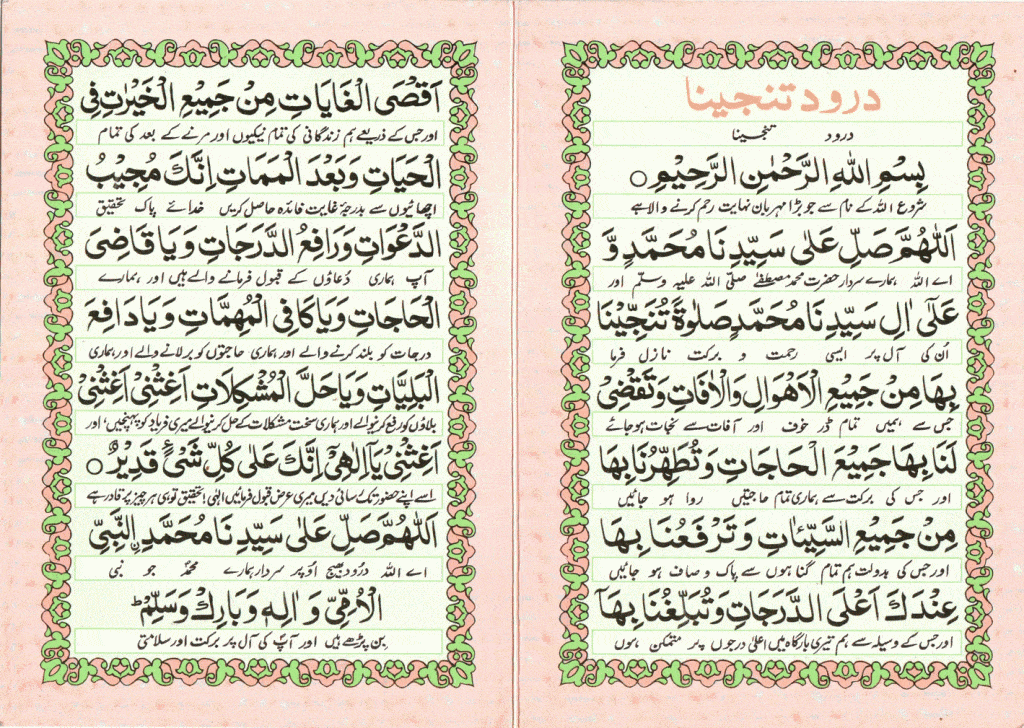 درود تنجینا
درود تنجینا
بِسْمِ اللهِ الرَّحْمٰنِ الرَّحِيْمِ ○
شروع اللہ کے نام سے جو بڑا مہربان نہایت رحم کرنے والا ہے
اَللّٰهُمَّ صَلِّ عَلٰى سَيِّدِنَا مُحَمَّدٍ وَّ
اے اللہ ہمارے سردار حضرت محمد مصطفےٰ صلی اللہ علیہ وسلم اور
عَلٰٓى اٰلِ سَيِّدِنَا مُحَمَّدٍ صَلٰوةً تُنَجِّيْنَا
اُن کی آل پر ایسی رحمت و برکت نازل فرما
بِهَا مِنْ جَمِيْعِ الْاَهْوَالِ وَالْاٰفَاتِ وَتَقْضِىْ
جس سے ہمیں تمام ڈر خوف اور آفات سے نجات ہو جائے
لَنَا بِهَا جَمِيْعَ الْحَاجَاتِ وَتُطَهِّرُنَا بِهَا
اور جس کی برکت سے ہماری تمام حاجتیں روا ہو جائیں
مِنْ جَمِيْعِ السَّيِّاٰتِ وَتَرْفَعُنَا بِهَا
اور جس کی بدولت ہم تمام گناہوں سے پاک و صاف ہو جائیں
عِنْدَكَ اَعْلَى الدَّرَجَاتِ وَتُبَلِّغُنَا بِهَآ
اور جس کے وسیلہ سے ہم تیری بارگاہ میں اعلیٰ درجوں پر متمکن ہوں
اَقْصَى الْغَايَاتِ مِنْ جَمِيْعِ الْخَيْرٰتِ فِى
اور جس کے ذریعے ہم زندگانی کی تمام نیکیوں اور مرنے کے بعد کی تمام
الْحَيَاتِ وَبَعْدَ الْمَمَاتِ اِنَّكَ مُجِيْبُ
اچھائیوں سے بدرجۂ غایت فائدہ حاصل کریں خدائے پاک تحقیق
الدَّعْوَاتِ وَرَافِعُ الدَّرَجَاتِ وَيَا قَاضِىَ
آپ ہماری دُعاؤں کے قبول فرمانے والے ہیں اور ہمارے
الْحَاجَاتِ وَيَا كَافِىَ الْمُهِمَّاتِ وَيَا دَافِعَ
درجات کو بلند کرنے والے اور ہماری حاجتوں کو بر لانے والے اور ہماری
الْبَلِيَّاتِ وَيَا حَلَّ الْمُشْكِلَاتِ اَغِثْنِىْ اَغِثْنِىْ
بلاؤں کو رفع کرنیوالے اور ہماری سخت مشکلات کے حل کرنیوالے میری فریاد کو پہنچیں، اور
اَغِثْنِىْ يَآ اِلٰهِىْ اِنَّكَ عَلٰى كُلِّ شَىْءٍ قَدِيْرٌ ○
اسے اپنے حضور تک رسائی دیں میری عرض قبول فرمائیں الٰہی! تحقیق تو ہی ہر چیز پر قادر ہے
اَللّٰهُمَّ صَلِّ عَلٰى سَيِّدِنَا مُحَمَّدِ نِ النَّبِىِّ
اے اللہ درود بھیج اوپر سردار ہمارے محمدؐ جو نبی
الْاُمِّىِّ وَ اٰلِهٖ وَبَارِكْ وَسَلِّمْ ؕ
بن پڑھے ہیں اور آپؐ کی آل پر برکت اور سلامتی